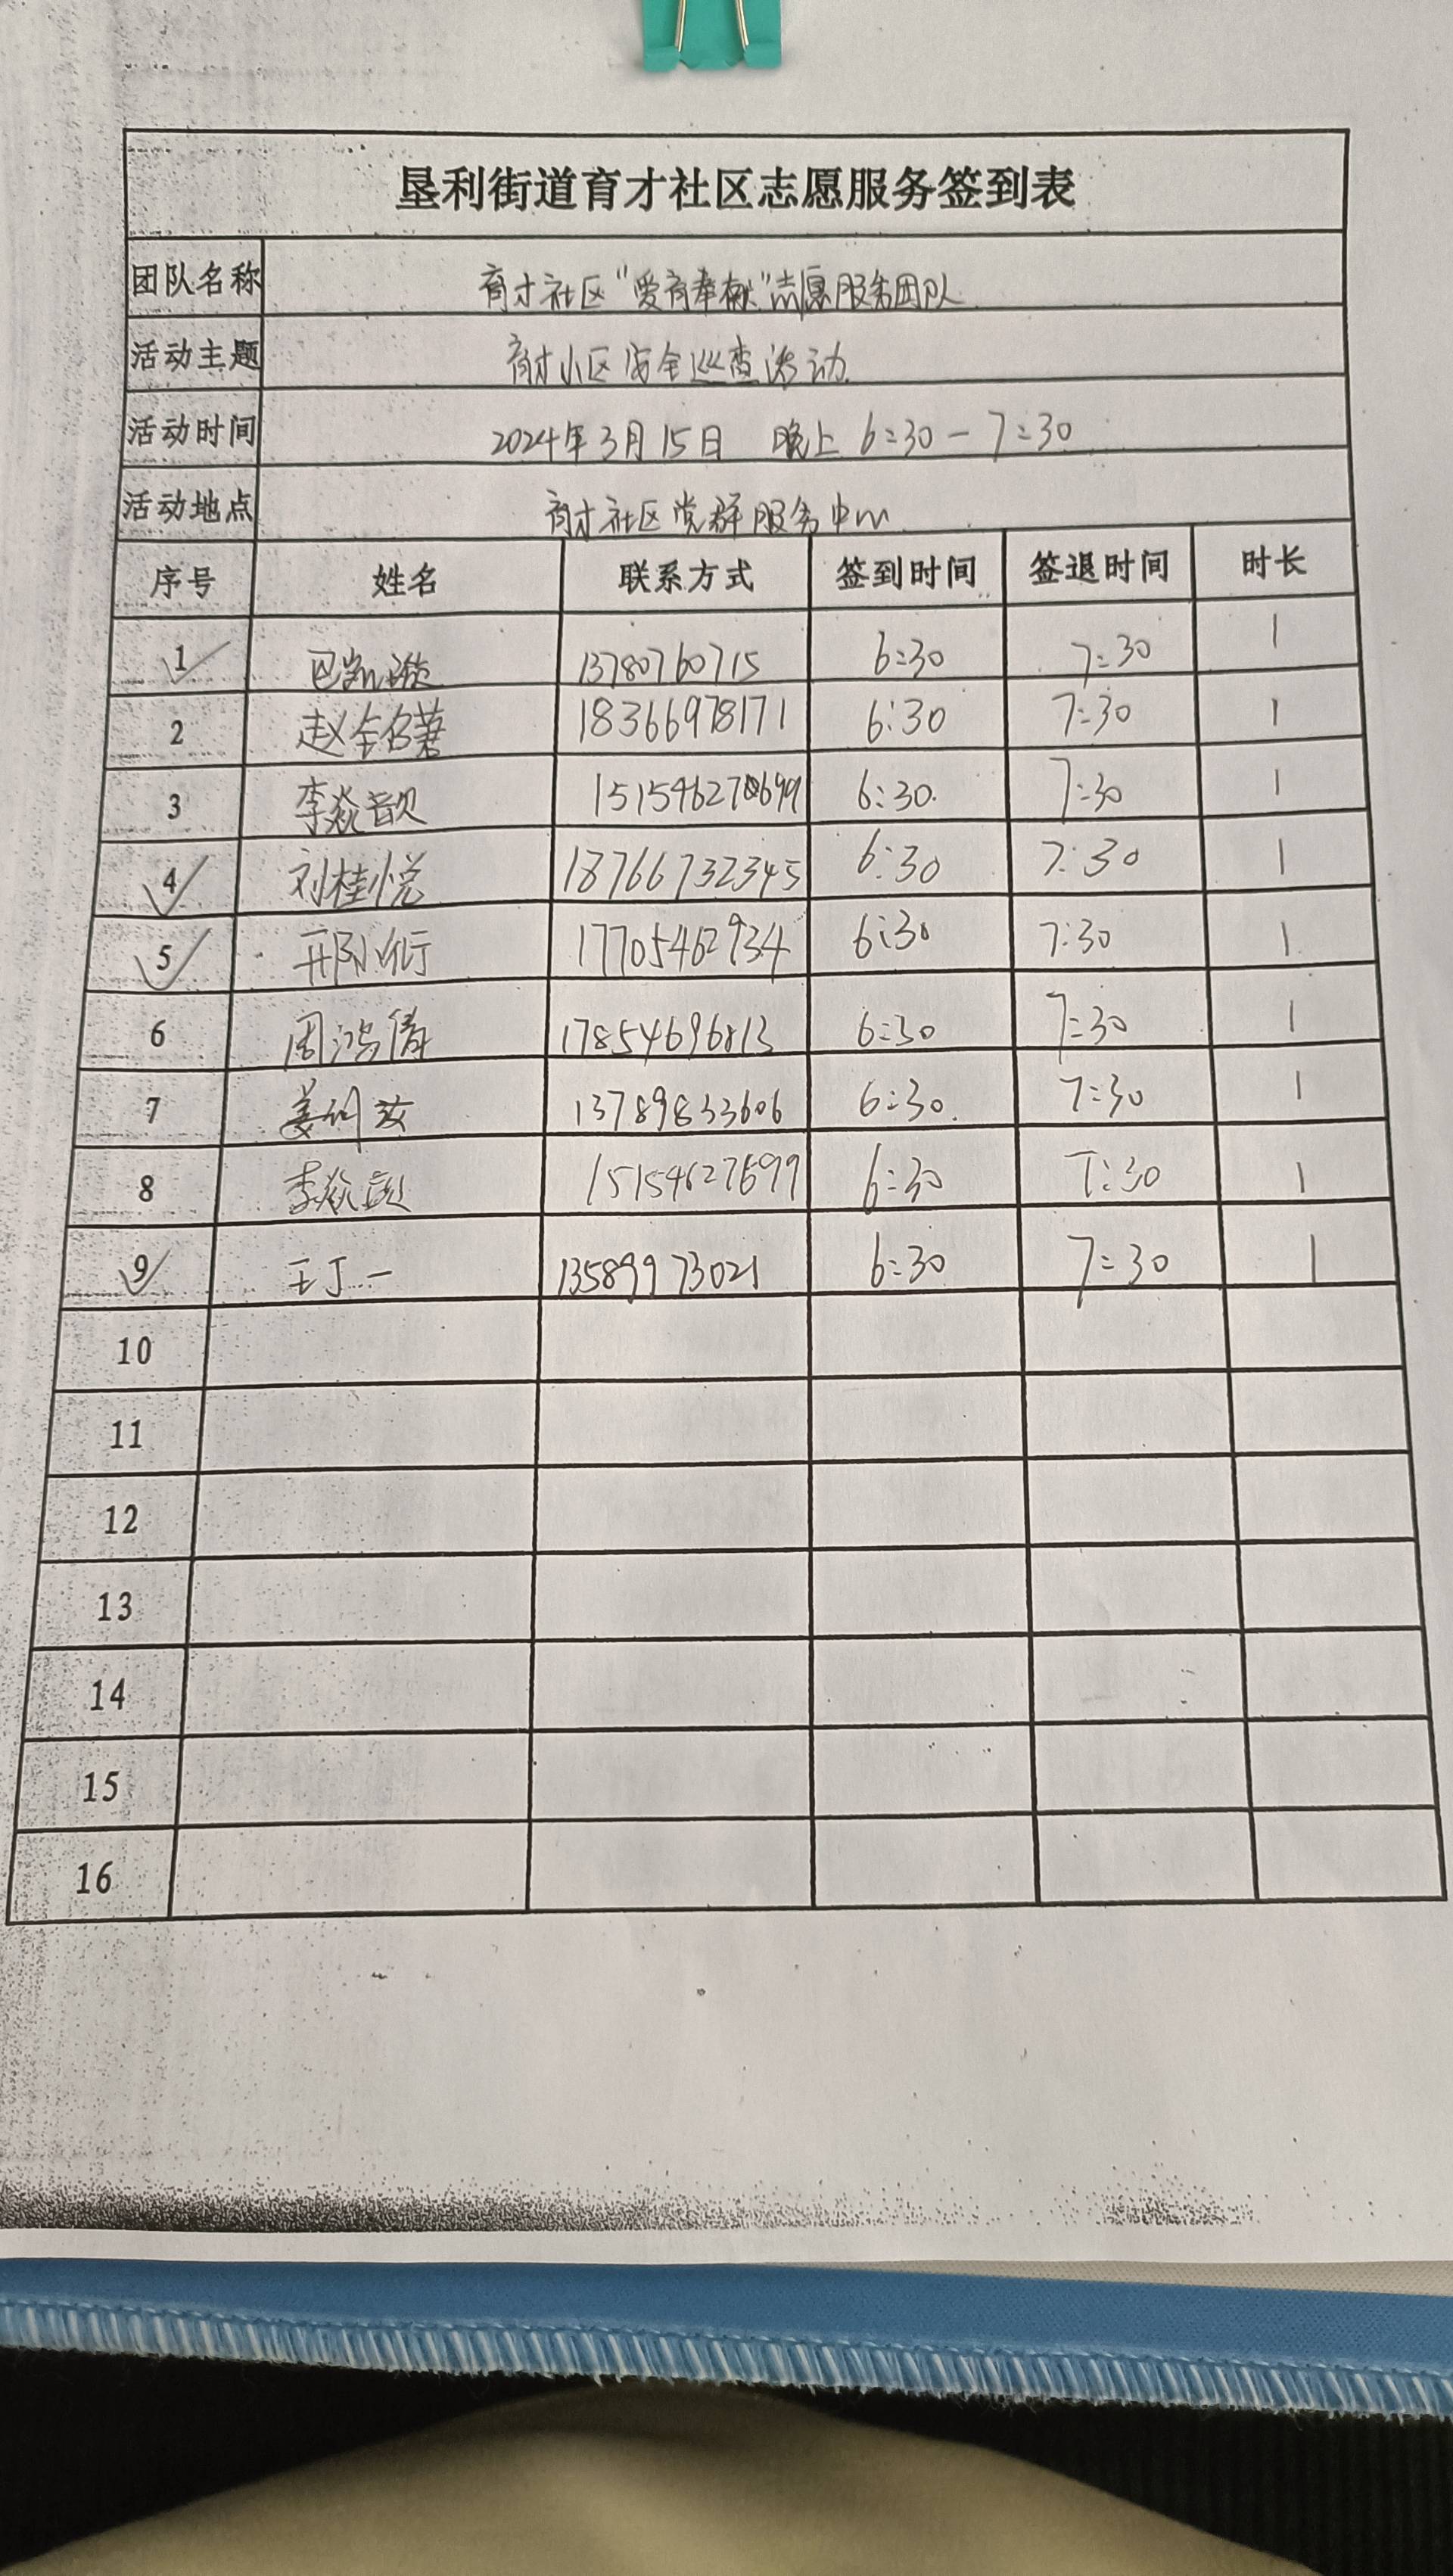 垦利街道育才社区志愿服务签到表
团队名称 育才社区"爱育奉献"志愿服务团队
活动主题 育才小区安全巡查活动
活动时间 2024年3月15日 晚上 6:30-7:30
活动地点 育才社区党群服务中心
序号 姓名 联系方式 签到时间 签退时间 时长
1 巴凯璇 13780760715 6:30 7:30 1
2 赵 18366978171 6:30 7:30 1
3 李焱歆 6:30 7:30 1
4 刘桂悦 18766732345 6:30 7:30 1
5 17705462934 6:30 7:30 1
6 周鸿倩 17854696813 6:30 7:30 1
7 姜 13789833606 6:30 7:30 1
8 李 6:30 7:30 1
9 王丁一 13589973021 6:30 7:30 1
10
11
12
13
14
15
16